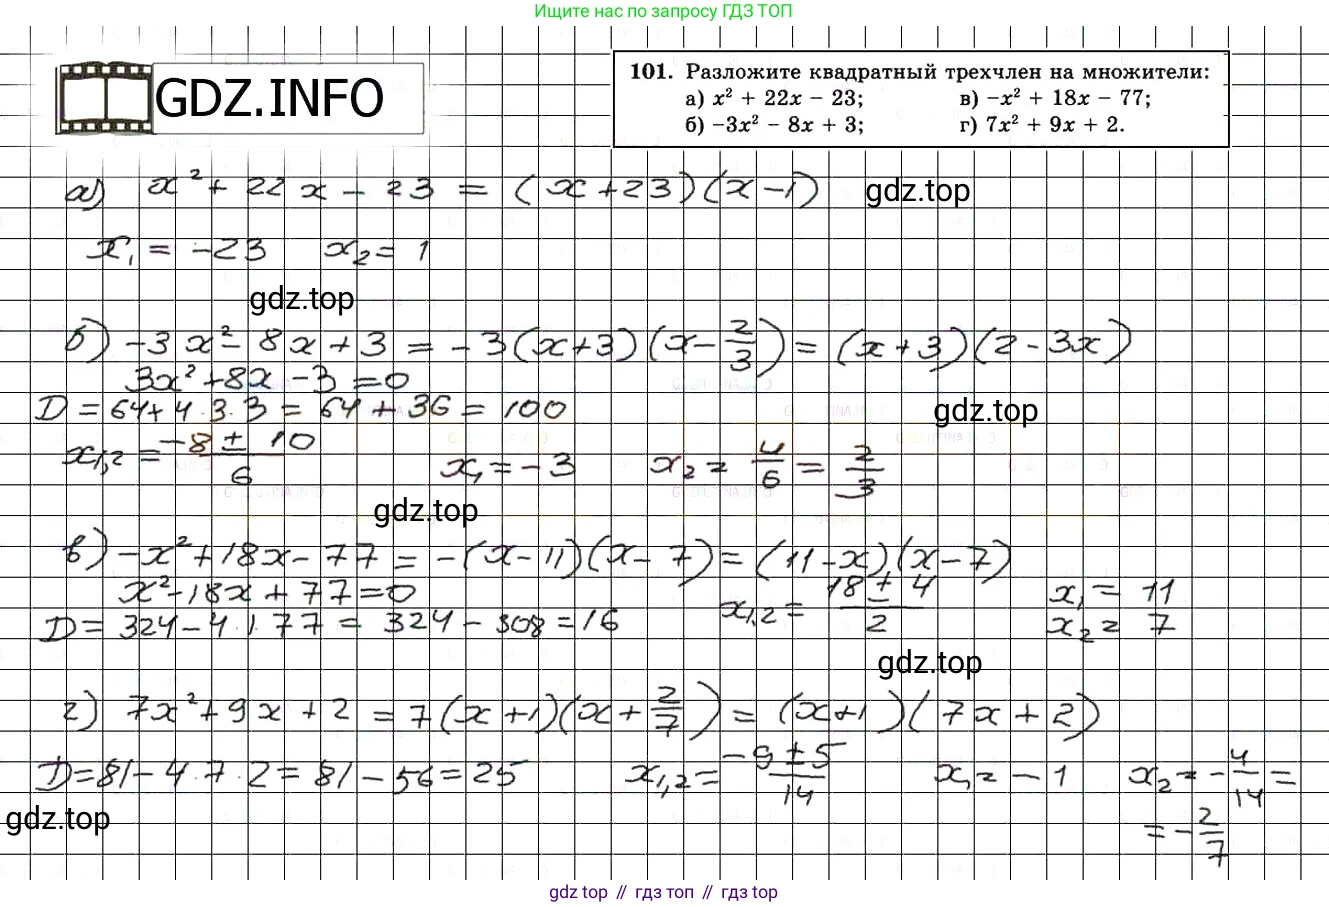 Ищите нас по запросу ГДЗ ТОП
GDZ.INFO
101. Разложите квадратный трехчлен на множители:
а) x² + 22x − 23; в) −x² + 18x − 77;
б) −3x² − 8x + 3; г) 7x² + 9x + 2.
а) x² + 22x − 23 = (x+23)(x−1)
gdz.top
x₁ = −23 x₂ = 1
gdz.top
б) −3x² − 8x + 3 = −3(x+3)(x−2/3) = (x+3)(2−3x)
3x² + 8x − 3 = 0
D = 64 + 4·3·3 = 64 + 36 = 100
gdz.top
x₁,₂ = (−8 ± 10)/6 x₁ = −3 x₂ = 4/6 = 2/3
gdz.top
в) −x² + 18x − 77 = −(x−11)(x−7) = (11−x)(x−7)
x² − 18x + 77 = 0 x₁,₂ = (18 ± 4)/2 x₁ = 11
D = 324 − 4·1·77 = 324 − 308 = 16 x₂ = 7
gdz.top
г) 7x² + 9x + 2 = 7(x+1)(x+2/7) = (x+1)(7x+2)
D = 81 − 4·7·2 = 81 − 56 = 25 x₁,₂ = (−9 ± 5)/14 x₁ = −1 x₂ = −4/14 =
gdz.top
= −2/7
gdz top // гдз топ // gdz top